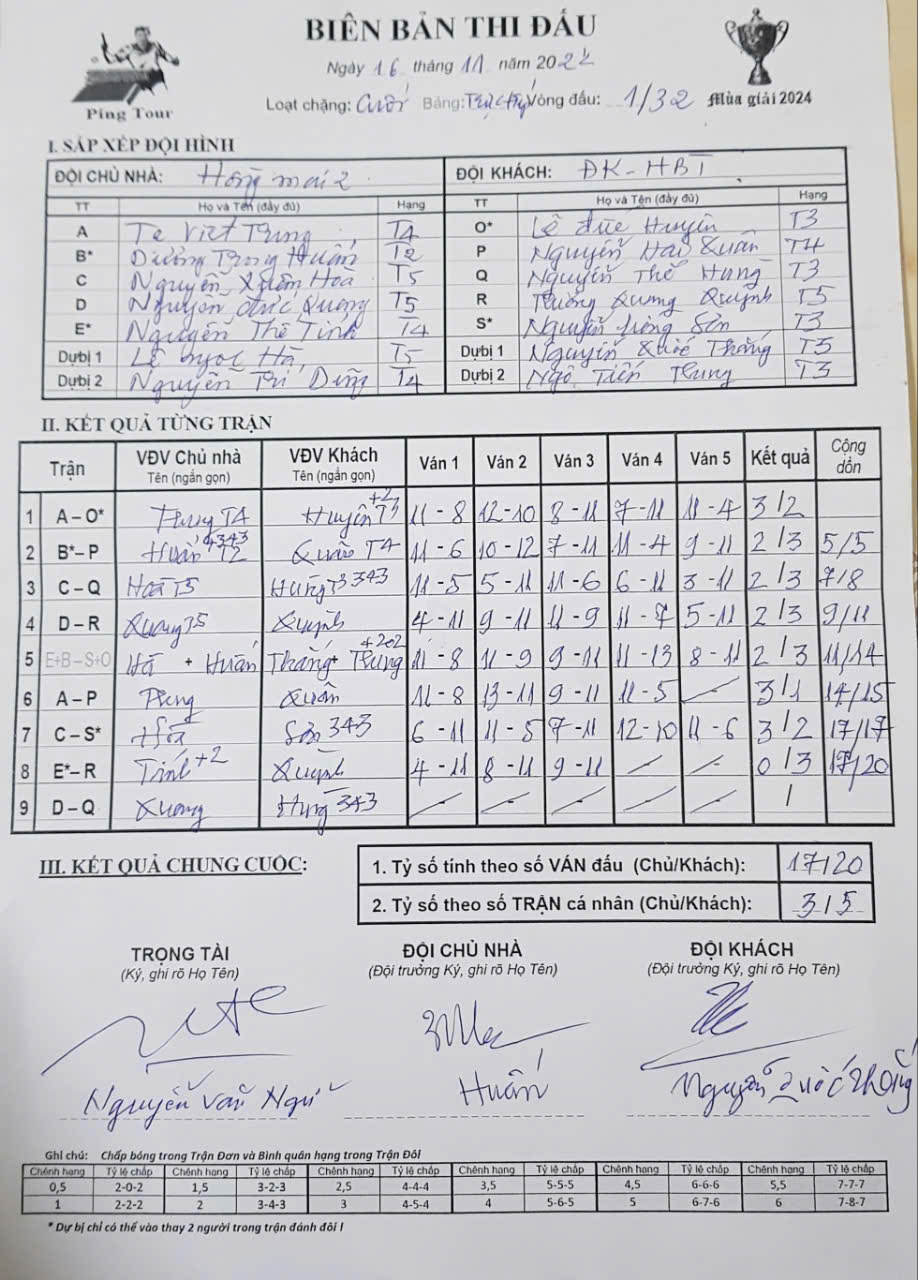 BIÊN BẢN THI ĐẤU
Ngày 16 tháng 11 năm 2024
Loạt chặng: Cuối Bảng: Vòng đấu: 1/32 Mùa giải 2024
Ping Tour
I. SẮP XẾP ĐỘI HÌNH
ĐỘI CHỦ NHÀ: Hoàng mai 2 ĐỘI KHÁCH: ĐK-HBT
TT Họ và Tên (đầy đủ) Hạng TT Họ và Tên (đầy đủ) Hạng
A Tạ Việt Trung T4 O* Lê Đức Huyên T3
B* Dương Trọng Huấn T2 P Nguyễn Hải Quân T4
C Nguyễn Xuân Hoà T5 Q Nguyễn Thế Hưng T3
D Nguyễn Đức Quang T5 R Trương Quang Quỳnh T5
E* Nguyễn Thế Tính T4 S* Nguyễn Sơn T3
Dự bị 1 Lê Ngọc Hà T5 Dự bị 1 Nguyễn Quốc Thắng T5
Dự bị 2 Nguyễn Trí Dũng T4 Dự bị 2 Ngô Tiến Trung T3
II. KẾT QUẢ TỪNG TRẬN
Trận VĐV Chủ nhà Tên (ngắn gọn) VĐV Khách Tên (ngắn gọn) Ván 1 Ván 2 Ván 3 Ván 4 Ván 5 Kết quả Cộng dồn
1 A – O* Trung T4 Huyên T3 +2 11 - 8 12 - 10 8 - 11 7 - 11 11 - 4 3 / 2
2 B* – P Huấn T2 +343 Quân T4 11 - 6 10 - 12 7 - 11 11 - 4 9 - 11 2 / 3 5/5
3 C – Q Hoà T5 Hưng T3 343 11 - 5 5 - 11 11 - 6 6 - 11 3 - 11 2 / 3 7/8
4 D – R Quang T5 Quỳnh 4 - 11 9 - 11 11 - 9 11 - 7 5 - 11 2 / 3 9/11
5 E+B – S+O Hà + Huấn Thắng + Trung +202 11 - 8 11 - 9 9 - 11 11 - 13 8 - 11 2 / 3 11/14
6 A – P Trung Quân 11 - 8 13 - 11 9 - 11 11 - 5 - 3 / 1 14/15
7 C – S* Hoà Sơn 343 6 - 11 11 - 5 7 - 11 12 - 10 11 - 6 3 / 2 17/17
8 E* – R Tính +2 Quỳnh 4 - 11 8 - 11 9 - 11 - - 0 / 3 17/20
9 D – Q Quang Hưng 343 - - - - - /
III. KẾT QUẢ CHUNG CUỘC:
1. Tỷ số tính theo số VÁN đấu (Chủ/Khách): 17/20
2. Tỷ số theo số TRẬN cá nhân (Chủ/Khách): 3/5
TRỌNG TÀI ĐỘI CHỦ NHÀ ĐỘI KHÁCH
(Ký, ghi rõ Họ Tên) (Đội trưởng Ký, ghi rõ Họ Tên) (Đội trưởng Ký, ghi rõ Họ Tên)
Nguyễn Văn Huấn Nguyễn Quốc Thắng
Ghi chú: Chấp bóng trong Trận Đơn và Bình quân hạng trong Trận Đôi
Chênh hạng Tỷ lệ chấp Chênh hạng Tỷ lệ chấp Chênh hạng Tỷ lệ chấp Chênh hạng Tỷ lệ chấp Chênh hạng Tỷ lệ chấp Chênh hạng Tỷ lệ chấp
0,5 2-0-2 1,5 3-2-3 2,5 4-4-4 3,5 5-5-5 4,5 6-6-6 5,5 7-7-7
1 2-2-2 2 3-4-3 3 4-5-4 4 5-6-5 5 6-7-6 6 7-8-7
* Dự bị chỉ có thể vào thay 2 người trong trận đánh đôi !